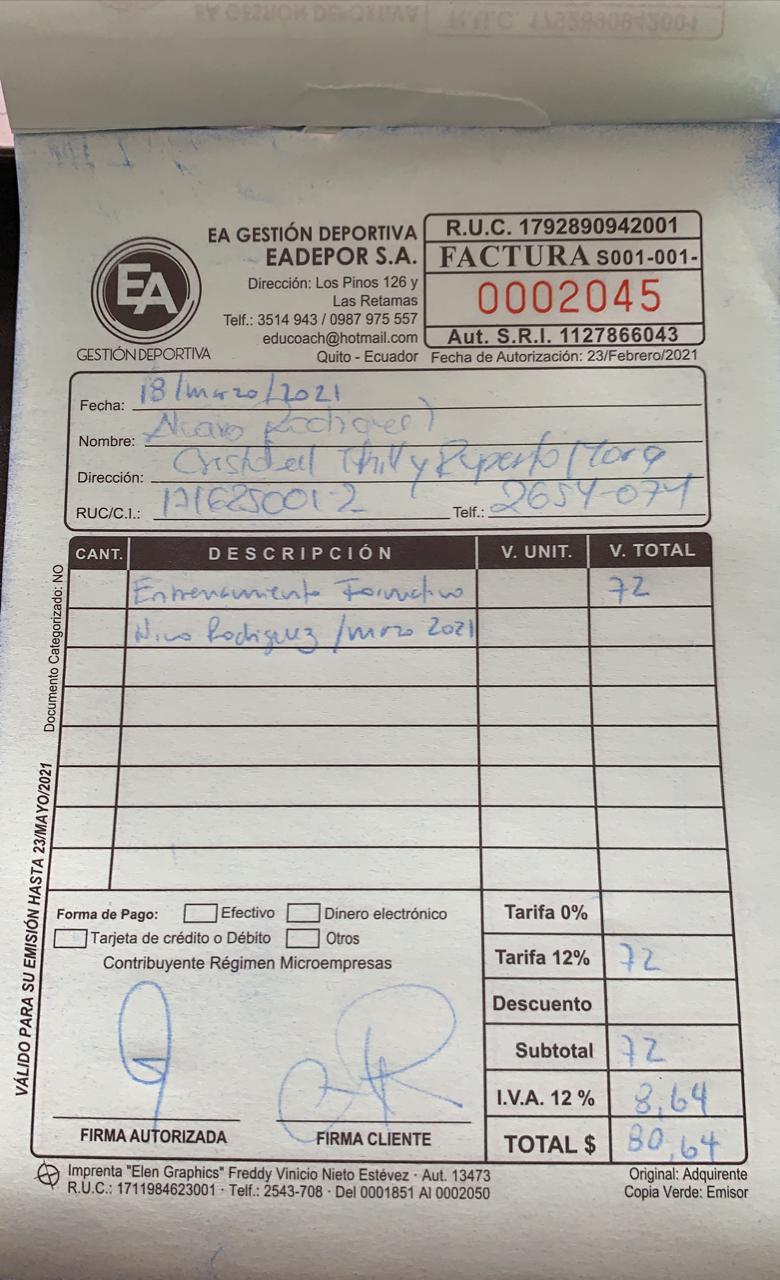 EA GESTIÓN DEPORTIVA
EADEPOR S.A.
Dirección: Los Pinos 126 y
Las Retamas
Telf.: 3514 943 / 0987 975 557
educoach@hotmail.com
Quito - Ecuador
EA
GESTIÓN DEPORTIVA
R.U.C. 1792890942001
FACTURA S001-001-
0002045
Aut. S.R.I. 1127866043
Fecha de Autorización: 23/Febrero/2021
Fecha: 18/marzo/2021
Nombre: Alvaro Rodriguez
Dirección: Cristobal y Ruperto
RUC/C.I.: 171625001-2 Telf.: 2654-071
CANT. DESCRIPCIÓN V. UNIT. V. TOTAL
Entrenamiento Formativo 72
Nico Rodriguez /marzo 2021
Documento Categorizado: NO
VÁLIDO PARA SU EMISIÓN HASTA 23/MAYO/2021
Forma de Pago: Efectivo Dinero electrónico
Tarjeta de crédito o Débito Otros
Contribuyente Régimen Microempresas
Tarifa 0%
Tarifa 12% 72
Descuento
Subtotal 72
I.V.A. 12 % 8,64
TOTAL $ 80,64
FIRMA AUTORIZADA FIRMA CLIENTE
Imprenta "Elen Graphics" Freddy Vinicio Nieto Estévez · Aut. 13473
R.U.C.: 1711984623001 · Telf.: 2543-708 · Del 0001851 Al 0002050
Original: Adquirente
Copia Verde: Emisor